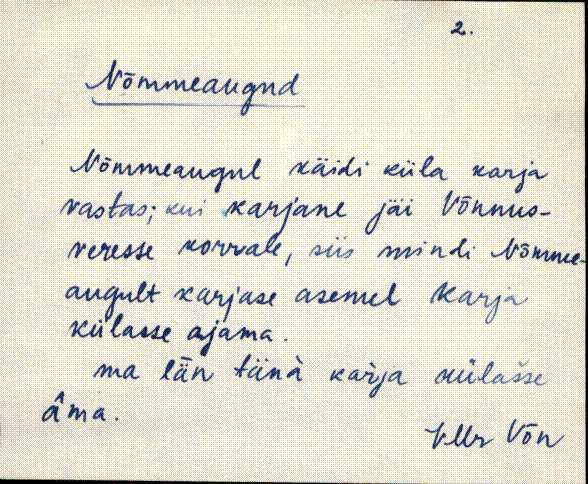 2.
Nõmmeaugud
Nõmmeaugul käidi küla karja
vastas; kui karjane jäi Võnnus-
veresse korvale, siis mindi Nõmme-
augult karjase asemel karja
külasse ajama.
ma län tänà kaŕja külašse
âma.
VMr Võn